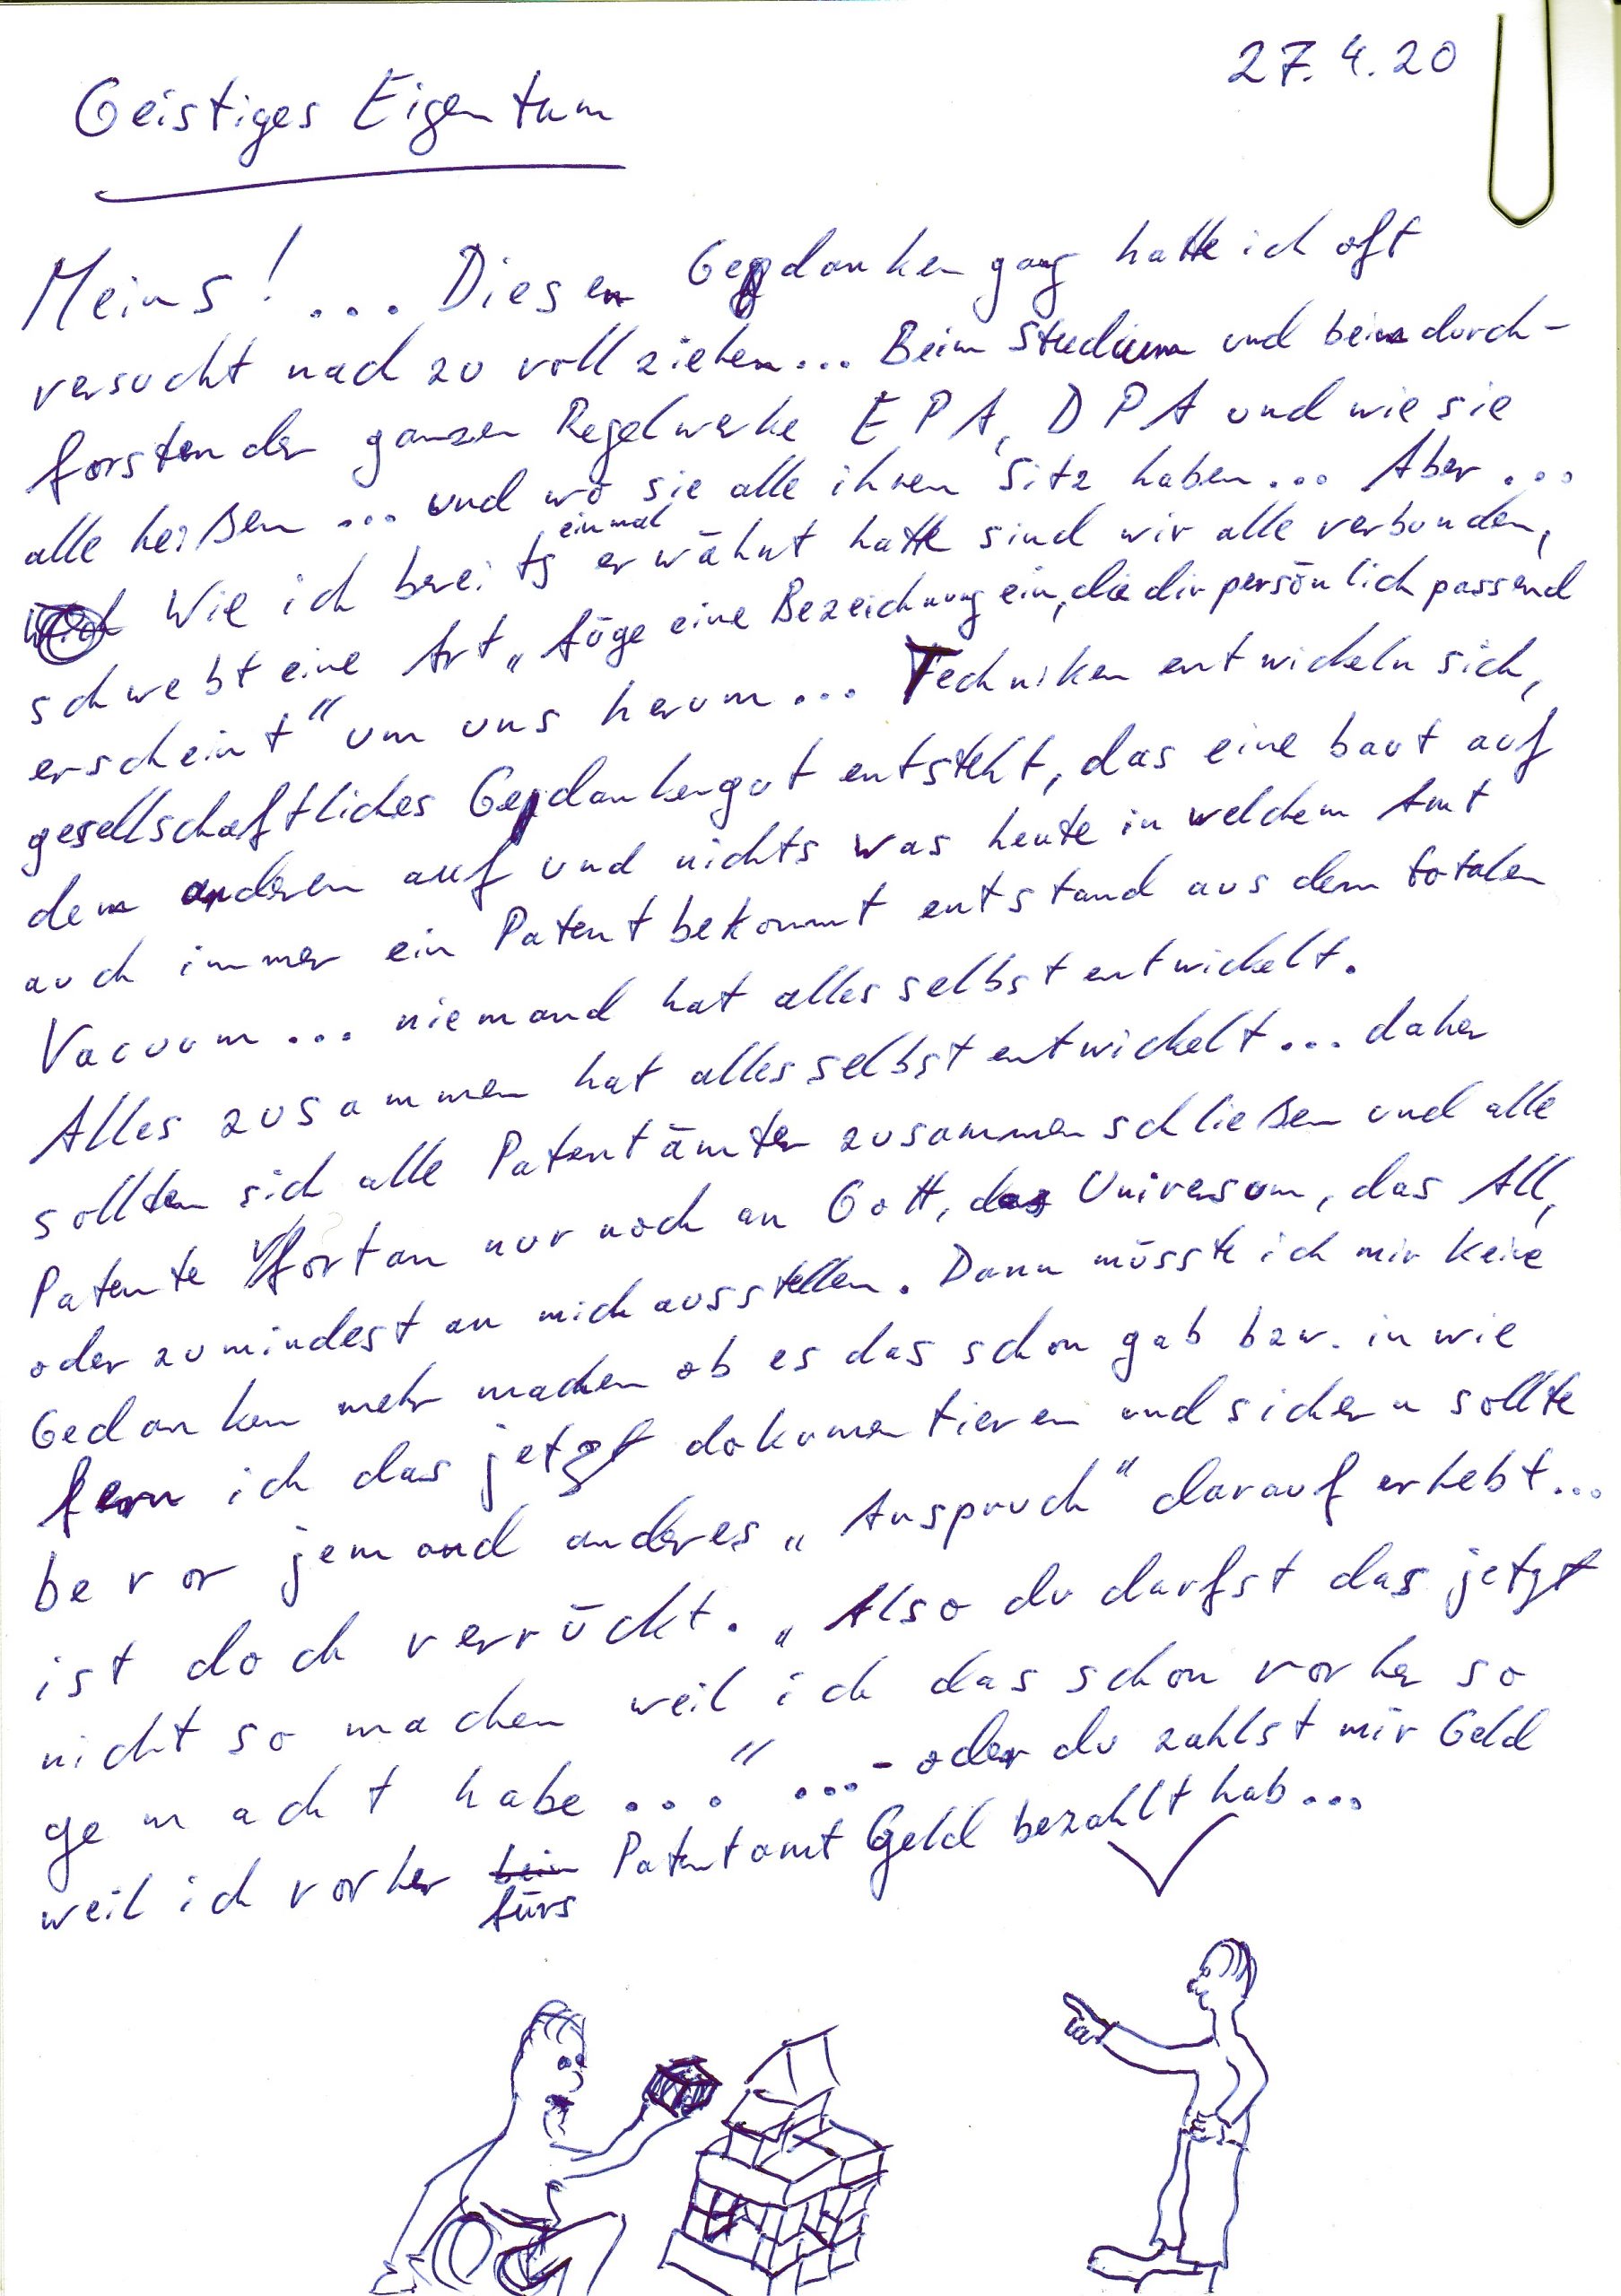 27.4.20
Geistiges Eigentum
Meins! ... Diesen Gedankengang hatte ich oft
versucht nach zu vollziehen... Beim Studium und beim durch-
forsten der ganzen Regelwerke EPA, DPA und wie sie
alle heißen ... und wo sie alle ihren Sitz haben... Aber ...
Wie ich bereits einmal erwähnt hatte sind wir alle verbunden,
schwebt eine Art „füge eine Bezeichnung ein, die dir persönlich passend
erscheint" um uns herum... Techniken entwickeln sich,
gesellschaftliches Gedankengut entsteht, das eine baut auf
dem anderen auf und nichts was heute in welchem Amt
auch immer ein Patent bekommt entstand aus dem totalen
Vacuum... niemand hat alles selbst entwickelt.
Alles zusammen hat alles selbst entwickelt... daher
sollten sich alle Patentämter zusammenschließen und alle
Patente fortan nur noch an Gott, das Universum, das All,
oder zumindest an mich ausstellen. Dann müsste ich mir keine
Gedanken mehr machen ob es das schon gab bzw. in wie
fern ich das jetzt dokumentieren und sichern sollte
bevor jemand anderes „Anspruch" darauf erhebt...
ist doch verrückt. „Also du darfst das jetzt
nicht so machen weil ich das schon vorher so
gemacht habe ..." ...- oder du zahlst mir Geld
weil ich vorher beim fürs Patentamt Geld bezahlt hab...